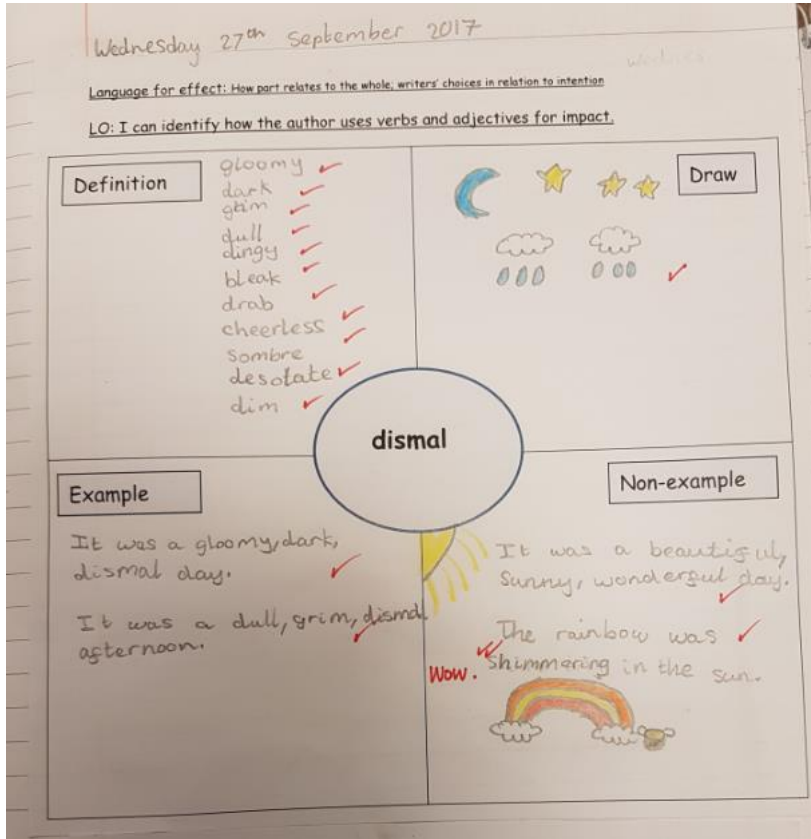 Wednesday 27th September 2017
Language for effect: How part relates to the whole; writers' choices in relation to intention
LO: I can identify how the author uses verbs and adjectives for impact.
Definition
gloomy
dark
grim
dull
dingy
bleak
drab
cheerless
sombre
desolate
dim
Draw
dismal
Example
It was a gloomy, dark,
dismal day.
It was a dull, grim, dismal
afternoon.
Non-example
It was a beautiful,
sunny, wonderful day.
The rainbow was
Wow. shimmering in the sun.